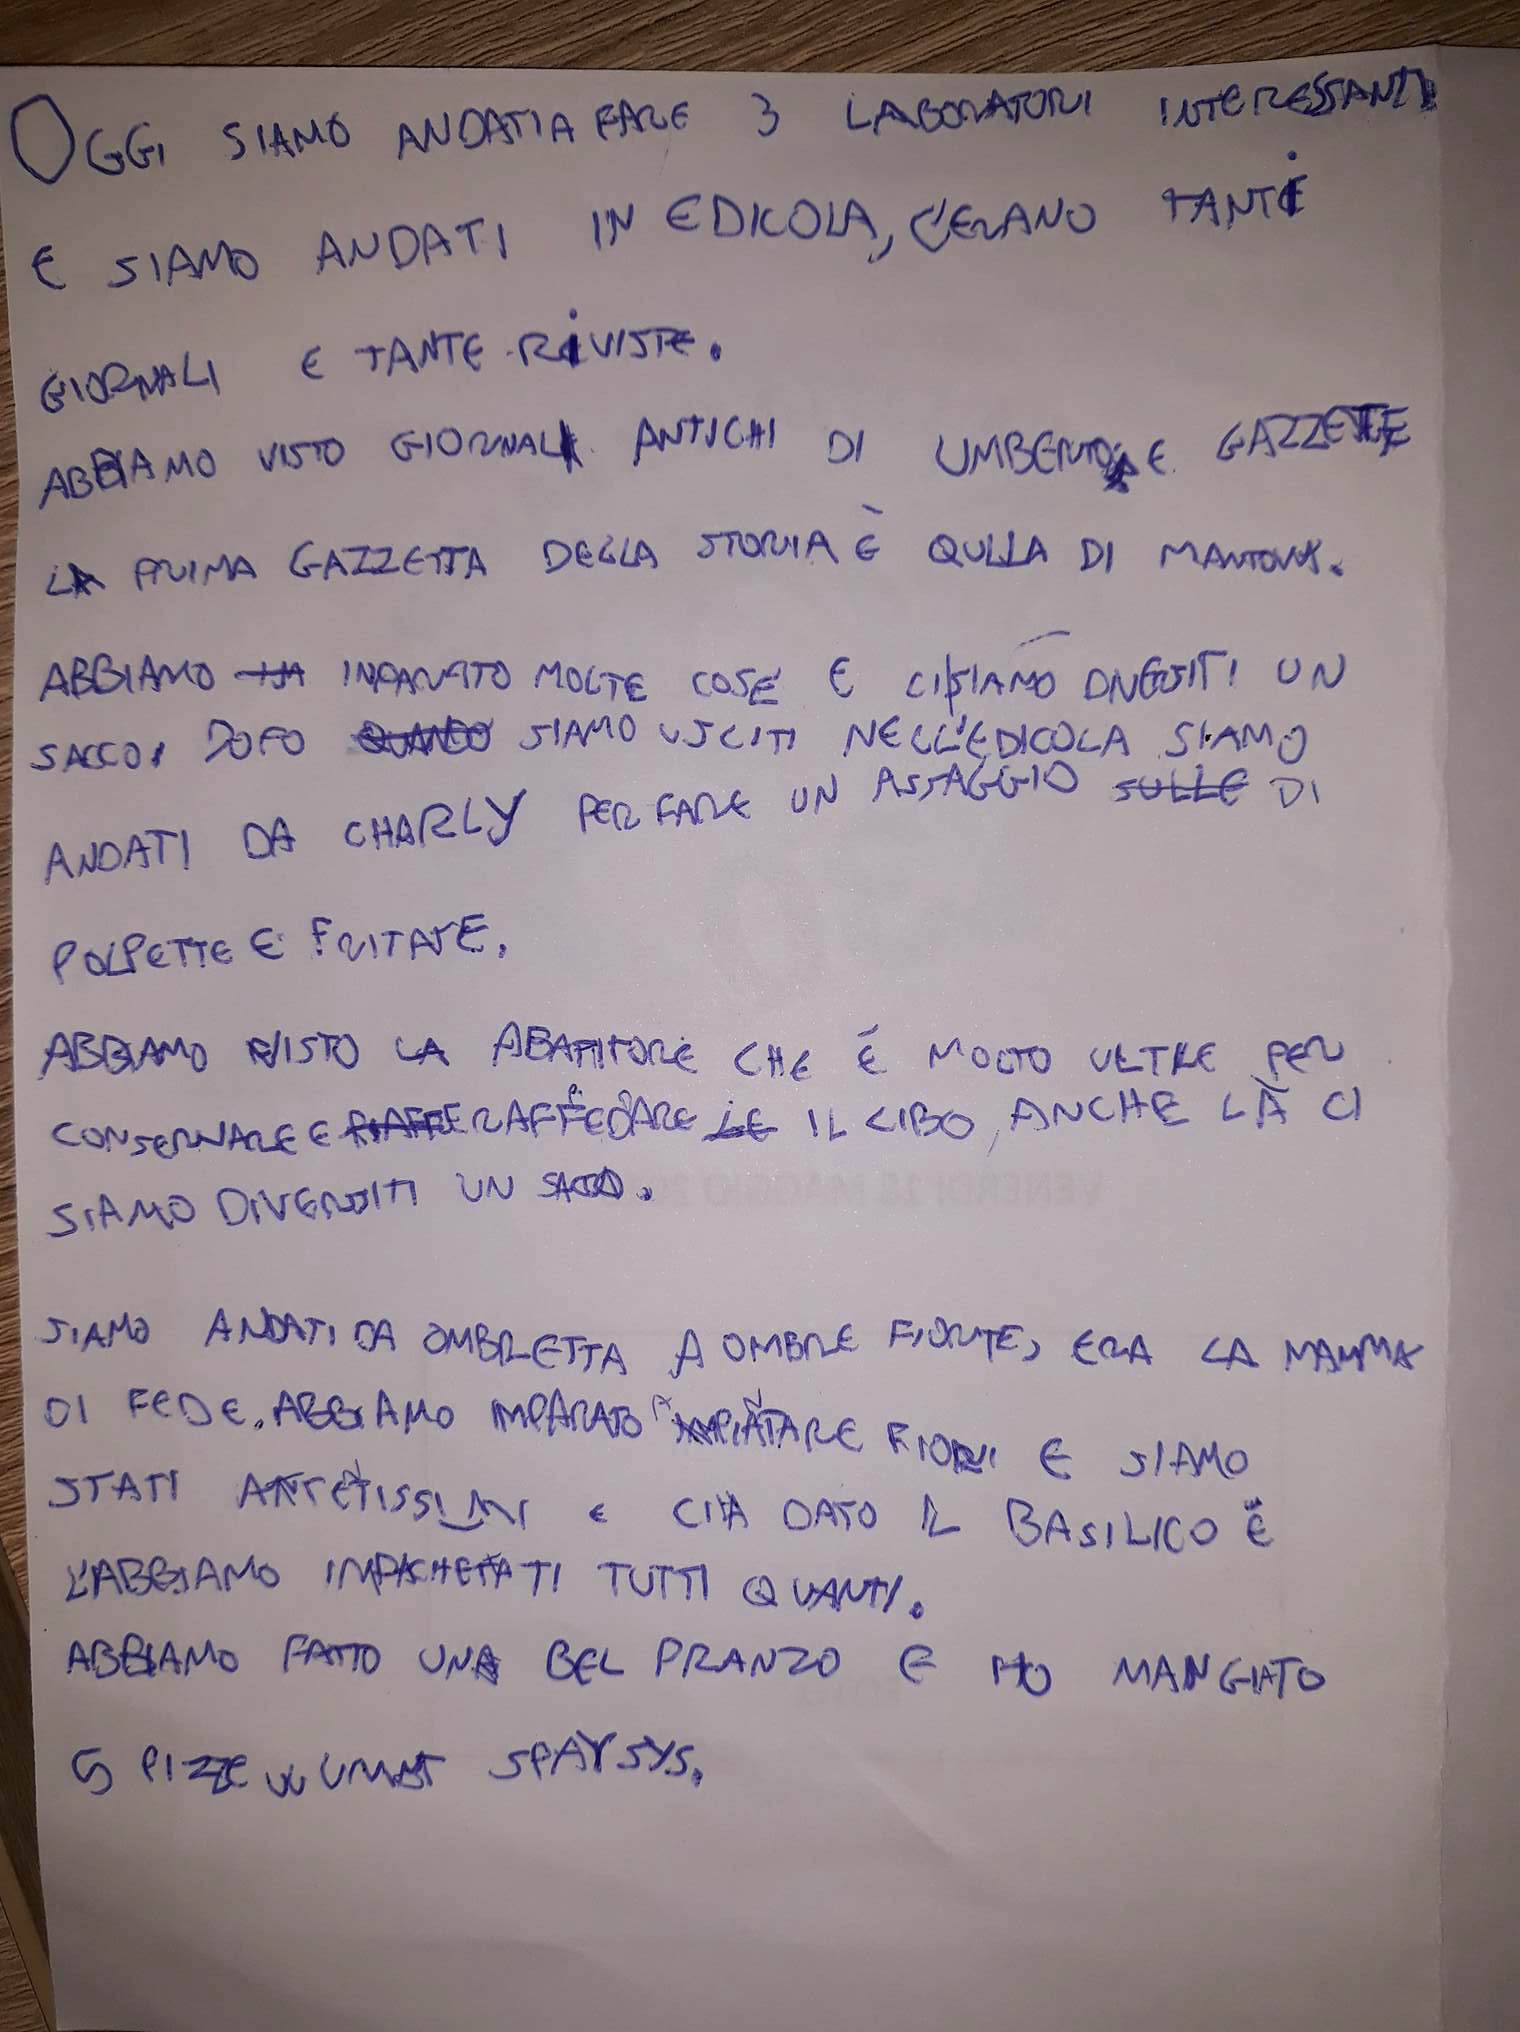 OGGI SIAMO ANDATI A FARE 3 LABORATORI INTERESSANTI
E SIAMO ANDATI IN EDICOLA, C'ERANO TANTI
GIORNALI E TANTE RIVISTE.
ABBIAMO VISTO GIORNALI ANTICHI DI UMBERTO E GAZZETTE
LA PRIMA GAZZETTA DELLA STORIA È QULLA DI MANTOVA.
ABBIAMO INPARATO MOLTE COSE E CI SIAMO DIVERTITI UN
SACCO. DOPO QUANDO SIAMO USCITI NELL'EDICOLA SIAMO
ANDATI DA CHARLY PER FARE UN ASSAGGIO SULLE DI
POLPETTE E FRITATE.
ABBIAMO VISTO LA ABATITORE CHE É MOLTO ULTRE PER
CONSERVARE E RAFFEDARE LE IL CIBO, ANCHE LÀ CI
SIAMO DIVERTITI UN SACCO.
SIAMO ANDATI DA OMBRETTA A OMBRE FIORITE, ERA LA MAMMA
DI FEDE. ABBIAMO IMPARATO PIATARE FIORI E SIAMO
STATI E CI HA DATO IL BASILICO E
L'ABBIAMO IMPACHETATI TUTTI QUANTI.
ABBIAMO FATTO UNA BEL PRANZO E HO MANGIATO
5 PIZZE SPAYSYS.